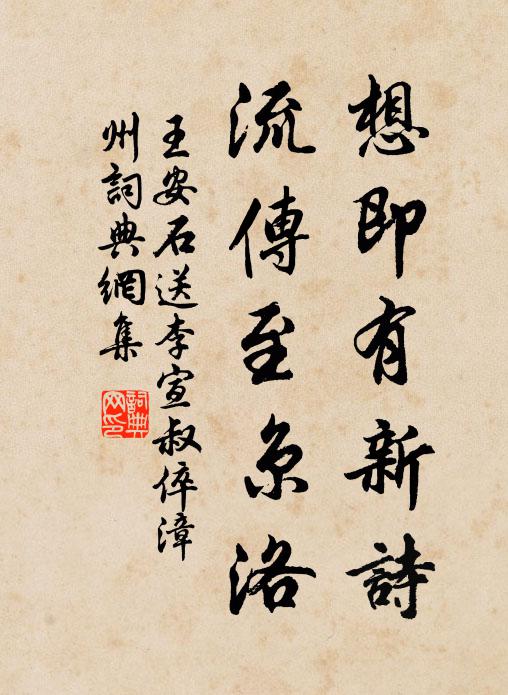 想即有新詩
流傳至京洛
王安石送李宣叔倅漳
州詞典網集
詞典
网印